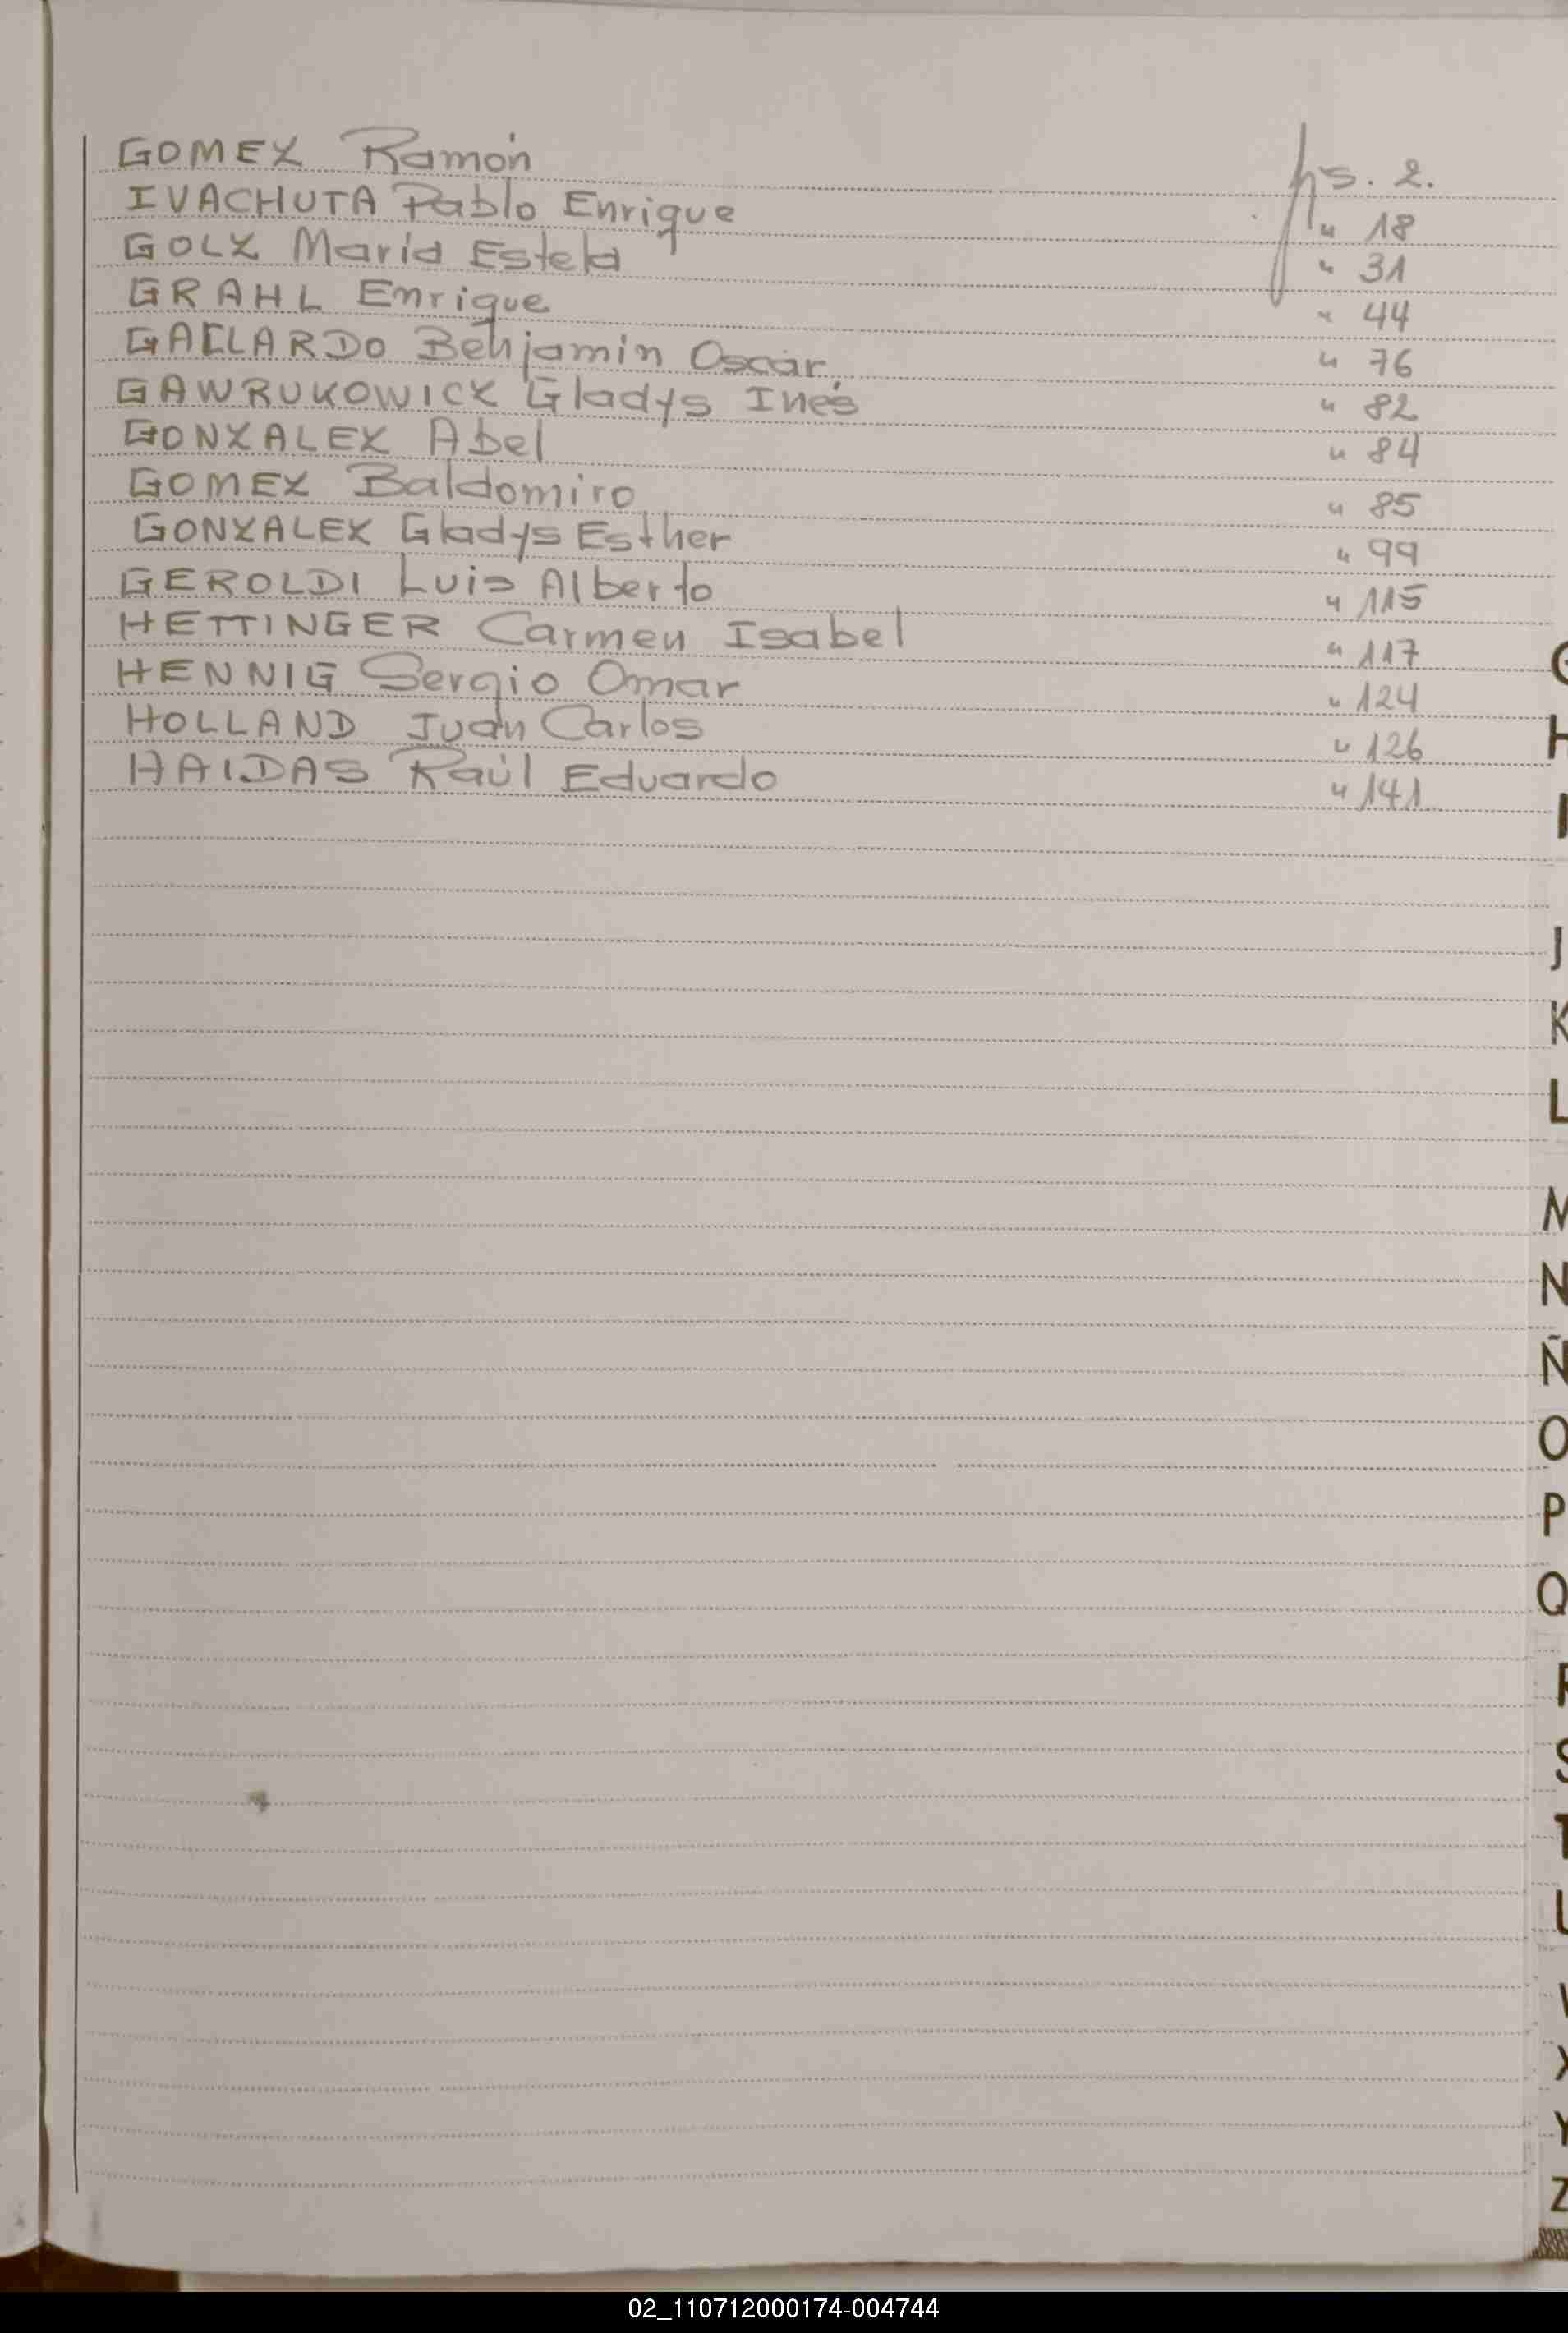 GOMEZ Ramón fs. 2.
IVACHUTA Pablo Enrique " 18
GOLZ María Estela " 31
GRAHL Enrique " 44
GALLARDO Benjamin Oscar. " 76
GAWRUKOWICZ Gladys Inés " 82
GONZALEZ Abel " 84
GOMEZ Baldomiro " 85
GONZALEZ Gladys Esther " 99
GEROLDI Luis Alberto " 115
HETTINGER Carmen Isabel " 117
HENNIG Sergio Omar " 124
HOLLAND Juan Carlos " 126
HAIDAS Raúl Eduardo " 141
G
H
I
J
K
L
M
N
Ñ
O
P
Q
R
S
T
U
V
X
Y
Z
02_110712000174-004744